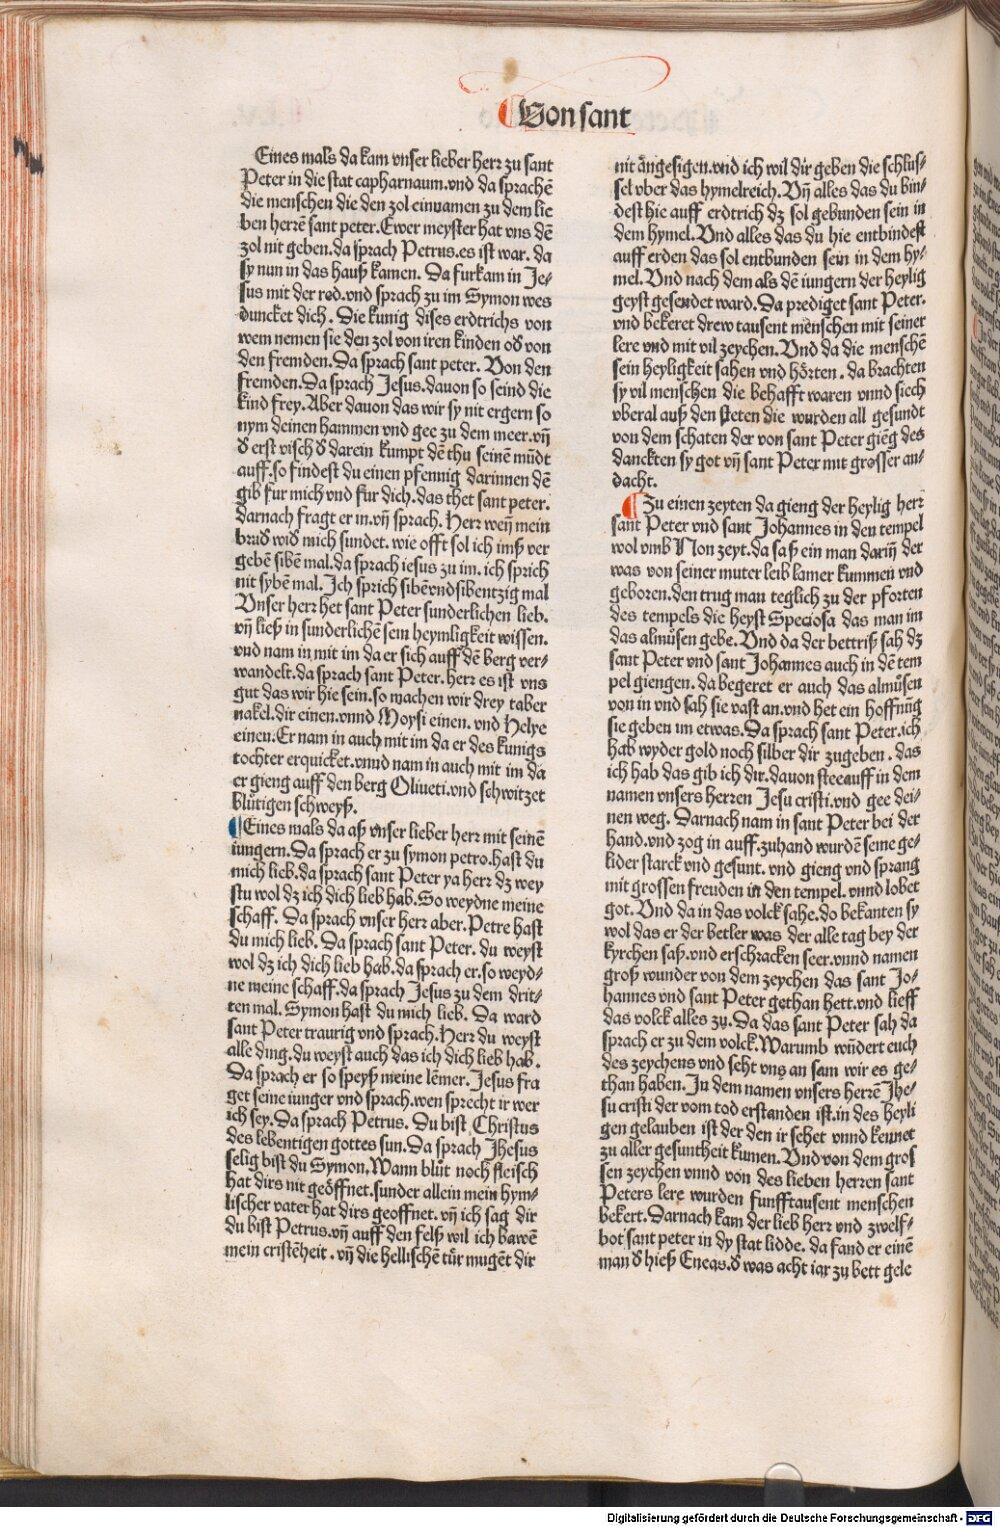 Von sant
Eines mals da kam vnser lieber herr zu sant
Peter in die stat capharnaum. vnd da sprachē
die menschen die den zol einnamen zu dem lie
ben herrē sant peter. Ewer meyster hat vns dē
zol nit geben. da sprach Petrus. es ist war. da
sy nun in das hauß kamen. Da furkam in Je⸗
sus mit der red. vnd sprach zu im Symon wes
duncket dich. Die kunig dises erdtrichs von
wem nemen sie den zol von iren kinden oď von
den fremden. Da sprach sant peter. Von den
fremden. Da sprach Jesus. dauon so seind die
kind frey. Aber dauon das wir sy nit ergern so
nym deinen hammen vnd gee zu dem meer. vn̄
ď erst visch ď darein kumpt dē thu seinē mūdt
auff. so findest du einen pfennig darinnen dē
gib fur mich vnd fur dich. das thet sant peter.
darnach fragt er in. vn̄ sprach. Herr wen̄ mein
bruď wiď mich sundet. wie offt sol ich imß ver
gebē sibē mal. da sprach iesus zu im. ich sprich
nit sybē mal. Ich sprich sibēvndsibentzig mal
Vnser herr het sant Peter sunderlichen lieb.
vn̄ ließ in sunderlichē sein heymligkeit wissen.
vnd nam in mit im da er sich auff dē berg ver⸗
wandelt. da sprach sant Peter. herr es ist vns
gut das wir hie sein. so machen wir drey taber
nakel. dir einen. vnnd Moysi einen. vnd Helye
einen. Er nam in auch mit im da er des kunigs
tochter erquicket. vnnd nam in auch mit im da
er gieng auff den berg Oliueti. vnd schwitzet
blůtigen schweyß.
Eines mals da aß vnser lieber herr mit seinē
iungern. Da sprach er zu symon petro. hast du
mich lieb. da sprach sant Peter ya herr dz wey
stu wol dz ich dich lieb hab. So weydne meine
schaff. Da sprach vnser herr aber. Petre hast
du mich lieb. Da sprach sant Peter. du weyst
wol dz ich dich lieb hab. da sprach er. so weyd⸗
ne meine schaff. da sprach Jesus zu dem drit⸗
ten mal. Symon hast du mich lieb. Da ward
sant Peter traurig vnd sprach. Herr du weyst
alle ding. du weyst auch das ich dich lieb hab.
Da sprach er so speyß meine lēmer. Jesus fra
get seine iunger vnd sprach. wen sprecht ir wer
ich sey. Da sprach Petrus. Du bist Christus
des lebentigen gottes sun. Da sprach Jhesus
selig bist du Symon. Wann blůt noch fleisch
hat dirs nit geöffnet. sunder allein mein hym⸗
lischer vater hat dirs geoffnet. vn̄ ich sag dir
du bist Petrus. vn̄ auff den felß wil ich bawē
mein cristēheit. vn̄ die hellischē tür mugēt dir
nit āngesigen. vnd ich wil dir geben die schlus⸗
sel vber das hymelreich. Vn̄ alles das du bin⸗
dest hie auff erdtrich dz sol gebunden sein in
dem hymel. Vnd alles das du hie entbindest
auff erden das sol entbunden sein in dem hy⸗
mel. Vnd nach dem als dē iungern der heylig
geyst gesendet ward. Da prediget sant Peter.
vnd bekeret drew tausent menschen mit seiner
lere vnd mit vil zeychen. Vnd da die menschē
sein heyligkeit sahen vnd hörten. da brachten
sy vil menschen die behafft waren vnnd siech
vberal auß den steten die wurden all gesundt
von dem schaten der von sant Peter giēg des
danckten sy got vn̄ sant Peter mit grosser an⸗
dacht.
Zu einen zeyten da gieng der heylig herr
sant Peter vnd sant Johannes in den tempel
wol vmb Non zeyt. da saß ein man darin̄ der
was von seiner muter leib lamer kummen vnd
geboren. den trug man teglich zu der pforten
des tempels die heyst Speciosa das man im
das almůsen gebe. Vnd da der bettriß sah dz
sant Peter vnd sant Johannes auch in dē tem
pel giengen. da begeret er auch das almůsen
von in vnd sah sie vast an. vnd het ein hoffnūg
sie geben im etwas. Da sprach sant Peter. ich
hab wyder gold noch silber dir zugeben. das
ich hab das gib ich dir. dauon stee auff in dem
namen vnsers herren Jesu cristi. vnd gee dei⸗
nen weg. Darnach nam in sant Peter bei der
hand. vnd zog in auff. zuhand wurdē seine ge⸗
lider starck vnd gesunt. vnd gieng vnd sprang
mit grossen freuden in den tempel. vnnd lobet
got. Vnd da in das volck sahe. do bekanten sy
wol das er der betler was der alle tag bey der
kyrchen saß. vnd erschracken seer. vnnd namen
groß wunder von dem zeychen das sant Jo⸗
hannes vnd sant Peter gethan hett. vnd lieff
das volck alles zu. Da das sant Peter sah da
sprach er zu dem volck. Warumb wūdert euch
des zeychens vnd seht vns an sam wir es ge⸗
than haben. In dem namen vnsers herrē Jhe⸗
su cristi der vom tod erstanden ist. in des heyli
gen gelauben ist der den ir sehet vnnd kennet
zu aller gesuntheit kumen. Vnd von dem gros
sen zeychen vnnd von des lieben herren sant
Peters lere wurden funfftausent menschen
bekert. Darnach kam der lieb herr vnd zwelf⸗
bot sant peter in dy stat lidde. da fand er einē
man ď hieß Eneas. ď was acht iar zu bett gele
Digitalisierung gefördert durch die Deutsche Forschungsgemeinschaft - DFG